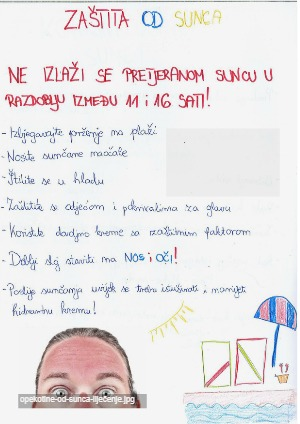 ZAŠTITA OD SUNCA
NE IZLAŽI SE PRETJERANOM SUNCU U
RAZDOBLJU IZMEĐU 11 i 16 SATI!
- Izbjegavajte prženje na plaži
- Nosite sunčane naočale
- Štitite se u hladu
- Zaštitite se odjećom i pokrivalima za glavu
- Koristite dovoljno kreme sa zaštitnim faktorom
- Deblji sloj staviti na NOS i OČI!
- Poslije sunčanja uvijek se treba istuširati i nanijeti
hidratantnu kremu!
opekotine-od-sunca-liječenje.jpg